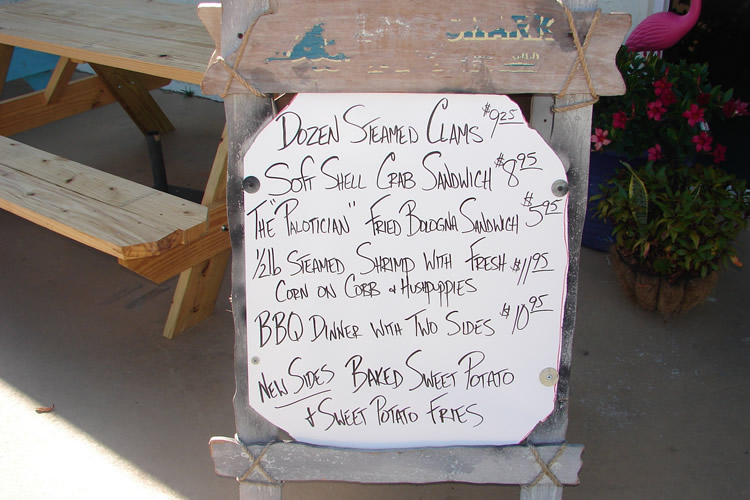 SHARK
DOZEN STEAMED CLAMS $9.25
SOFT SHELL CRAB SANDWICH $8.95
THE "PALOTICIAN" FRIED BOLOGNA SANDWICH $5.95
1/2 lb STEAMED SHRIMP WITH FRESH $11.95
CORN ON COBB & HUSHPUPPIES
BBQ DINNER WITH TWO SIDES $10.95
NEW SIDES BAKED SWEET POTATO
& SWEET POTATO FRIES